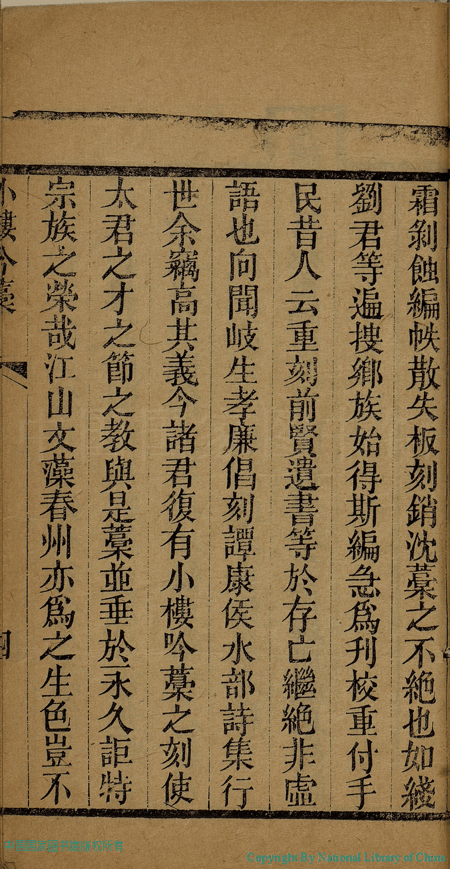 霜剝蝕編帙散失板刻銷沈藁之不絶也如綫
劉君等遍搜鄉族始得斯編急爲刊校重付手
民昔人云重刻前賢遺書等於存亡繼絶非虛
語也向聞岐生孝廉倡刻譚康侯水部詩集行
世余竊高其義今諸君復有小樓吟藁之刻使
太君之才之節之教與是藁並垂於永久詎特
宗族之榮哉江山文藻春州亦爲之生色豈不
小樓吟藁
四
Copyright By National Library of China